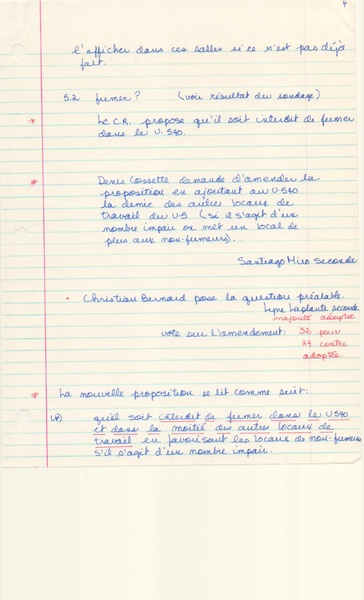 4
l'afficher dans ces salles si ce n'est pas déjà
fait.
5.2 fumer? (voir résultat du sondage)
Le C.R. propose qu'il soit interdit de fumer
dans le U-540.
Denis Cossette demande d'amender la
proposition en ajoutant au U-540
la demie des autres locaux de
travail du U-5 (si il s'agit d'un
nombre impair on met un local de
plus aux non-fumeurs).
Santiago Miro seconde
- Christian Bernard pose la question préalable.
Lyne Laplante seconde
majorité adoptée
vote sur l'amendement: 32 pour
24 contre
adoptée.
La nouvelle proposition se lit comme suit:
qu'il soit interdit de fumer dans le U540
et dans la moitié des autres locaux de
travail en favorisant les locaux de non-fumeurs
s'il s'agit d'un nombre impair.